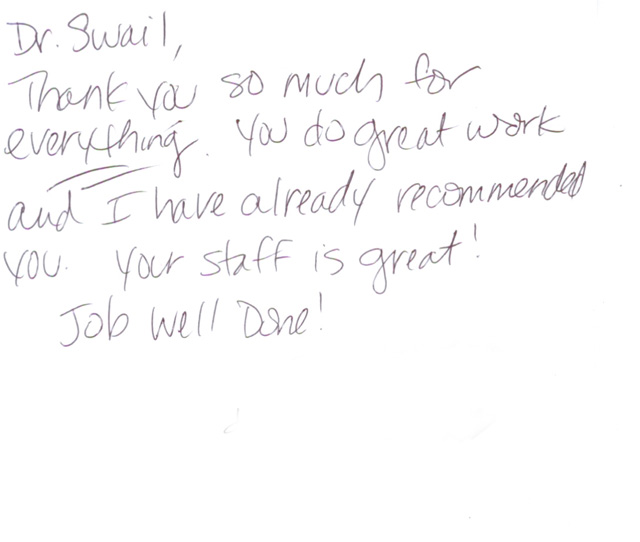 Dr. Swail,
Thank you so much for
everything. You do great work
and I have already recommended
you. Your staff is great!
Job Well Done!